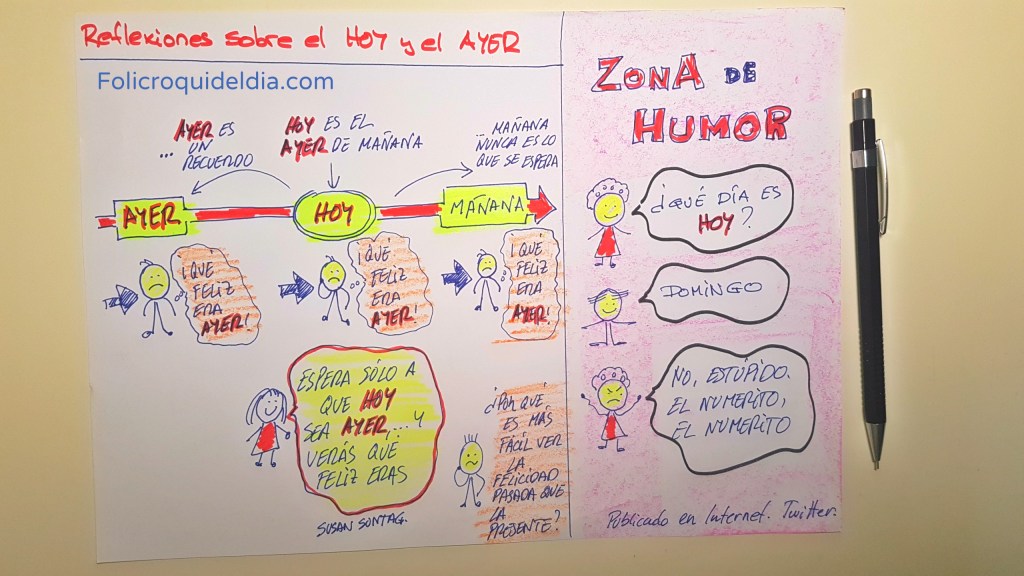 Reflexiones sobre el HOY y el AYER
Folicroquideldia.com
AYER ES
UN
... RECUERDO
HOY ES EL
AYER DE MAÑANA
MAÑANA
NUNCA ES LO
QUE SE ESPERA
AYER
HOY
MAÑANA
¡QUÉ
FELIZ
ERA
AYER!
¡QUÉ
FELIZ
ERA
AYER!
¡QUÉ
FELIZ
ERA
AYER!
ESPERA SÓLO A
QUE HOY
SEA AYER,... Y
VERÁS QUÉ
FELIZ ERAS
SUSAN SONTAG.
¿POR QUÉ
ES MÁS
FÁCIL VER
LA
FELICIDAD
PASADA QUE
LA
PRESENTE?
ZONA DE
HUMOR
¿QUÉ DÍA ES
HOY?
DOMINGO
NO, ESTÚPIDO.
EL NUMERITO,
EL NUMERITO
Publicado en Internet. Twitter.